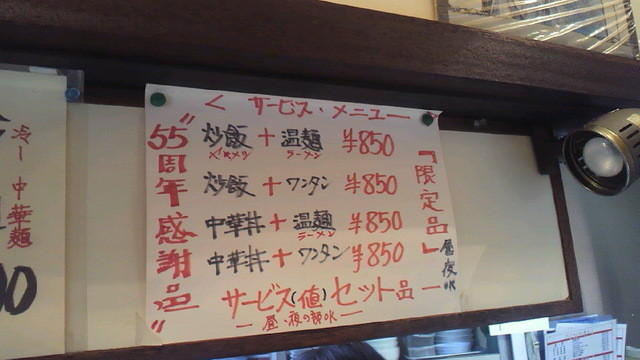 < サービス・メニュー
"55周年感謝品"
炒飯 + 温麺 ¥850
ラーメン
炒飯 + ワンタン ¥850
中華丼 + 温麺 ¥850
ラーメン
中華丼 + ワンタン ¥850
『限定品』
昼夜OK
サービス(値)セット品
― 昼・夜の部OK ―
冷し中華麺